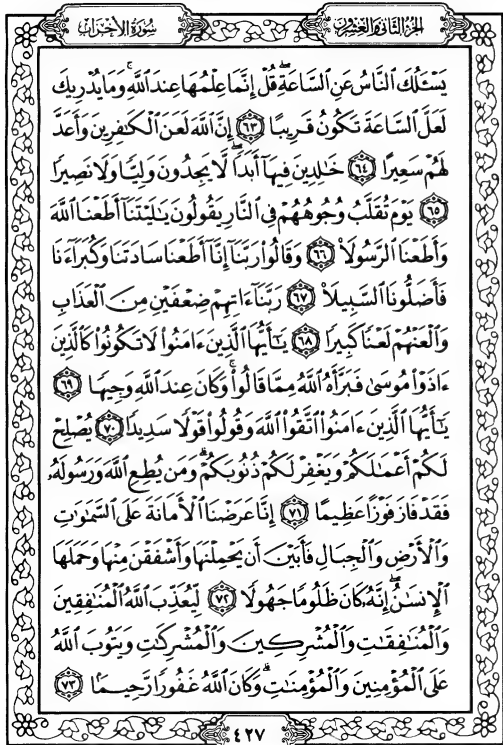 سُورَةُ الأَحْزَابِ الجُزْءُ الثَّانِي وَالعِشْرُونَ
يَسْـَٔلُكَ ٱلنَّاسُ عَنِ ٱلسَّاعَةِۖ قُلْ إِنَّمَا عِلْمُهَا عِندَ ٱللَّهِۚ وَمَا يُدْرِيكَ
لَعَلَّ ٱلسَّاعَةَ تَكُونُ قَرِيبًا ٦٣ إِنَّ ٱللَّهَ لَعَنَ ٱلْكَـٰفِرِينَ وَأَعَدَّ
لَهُمْ سَعِيرًا ٦٤ خَـٰلِدِينَ فِيهَآ أَبَدًاۖ لَّا يَجِدُونَ وَلِيًّا وَلَا نَصِيرًا
٦٥ يَوْمَ تُقَلَّبُ وُجُوهُهُمْ فِى ٱلنَّارِ يَقُولُونَ يَـٰلَيْتَنَآ أَطَعْنَا ٱللَّهَ
وَأَطَعْنَا ٱلرَّسُولَا۠ ٦٦ وَقَالُوا۟ رَبَّنَآ إِنَّآ أَطَعْنَا سَادَتَنَا وَكُبَرَآءَنَا
فَأَضَلُّونَا ٱلسَّبِيلَا۠ ٦٧ رَبَّنَآ ءَاتِهِمْ ضِعْفَيْنِ مِنَ ٱلْعَذَابِ
وَٱلْعَنْهُمْ لَعْنًا كَبِيرًا ٦٨ يَـٰٓأَيُّهَا ٱلَّذِينَ ءَامَنُوا۟ لَا تَكُونُوا۟ كَٱلَّذِينَ
ءَاذَوْا۟ مُوسَىٰ فَبَرَّأَهُ ٱللَّهُ مِمَّا قَالُوا۟ۚ وَكَانَ عِندَ ٱللَّهِ وَجِيهًا ٦٩
يَـٰٓأَيُّهَا ٱلَّذِينَ ءَامَنُوا۟ ٱتَّقُوا۟ ٱللَّهَ وَقُولُوا۟ قَوْلًا سَدِيدًا ٧٠ يُصْلِحْ
لَكُمْ أَعْمَـٰلَكُمْ وَيَغْفِرْ لَكُمْ ذُنُوبَكُمْۗ وَمَن يُطِعِ ٱللَّهَ وَرَسُولَهُۥ
فَقَدْ فَازَ فَوْزًا عَظِيمًا ٧١ إِنَّا عَرَضْنَا ٱلْأَمَانَةَ عَلَى ٱلسَّمَـٰوَٰتِ
وَٱلْأَرْضِ وَٱلْجِبَالِ فَأَبَيْنَ أَن يَحْمِلْنَهَا وَأَشْفَقْنَ مِنْهَا وَحَمَلَهَا
ٱلْإِنسَـٰنُۖ إِنَّهُۥ كَانَ ظَلُومًا جَهُولًا ٧٢ لِّيُعَذِّبَ ٱللَّهُ ٱلْمُنَـٰفِقِينَ
وَٱلْمُنَـٰفِقَـٰتِ وَٱلْمُشْرِكِينَ وَٱلْمُشْرِكَـٰتِ وَيَتُوبَ ٱللَّهُ
عَلَى ٱلْمُؤْمِنِينَ وَٱلْمُؤْمِنَـٰتِۗ وَكَانَ ٱللَّهُ غَفُورًا رَّحِيمًا ٧٣
٤٢٧